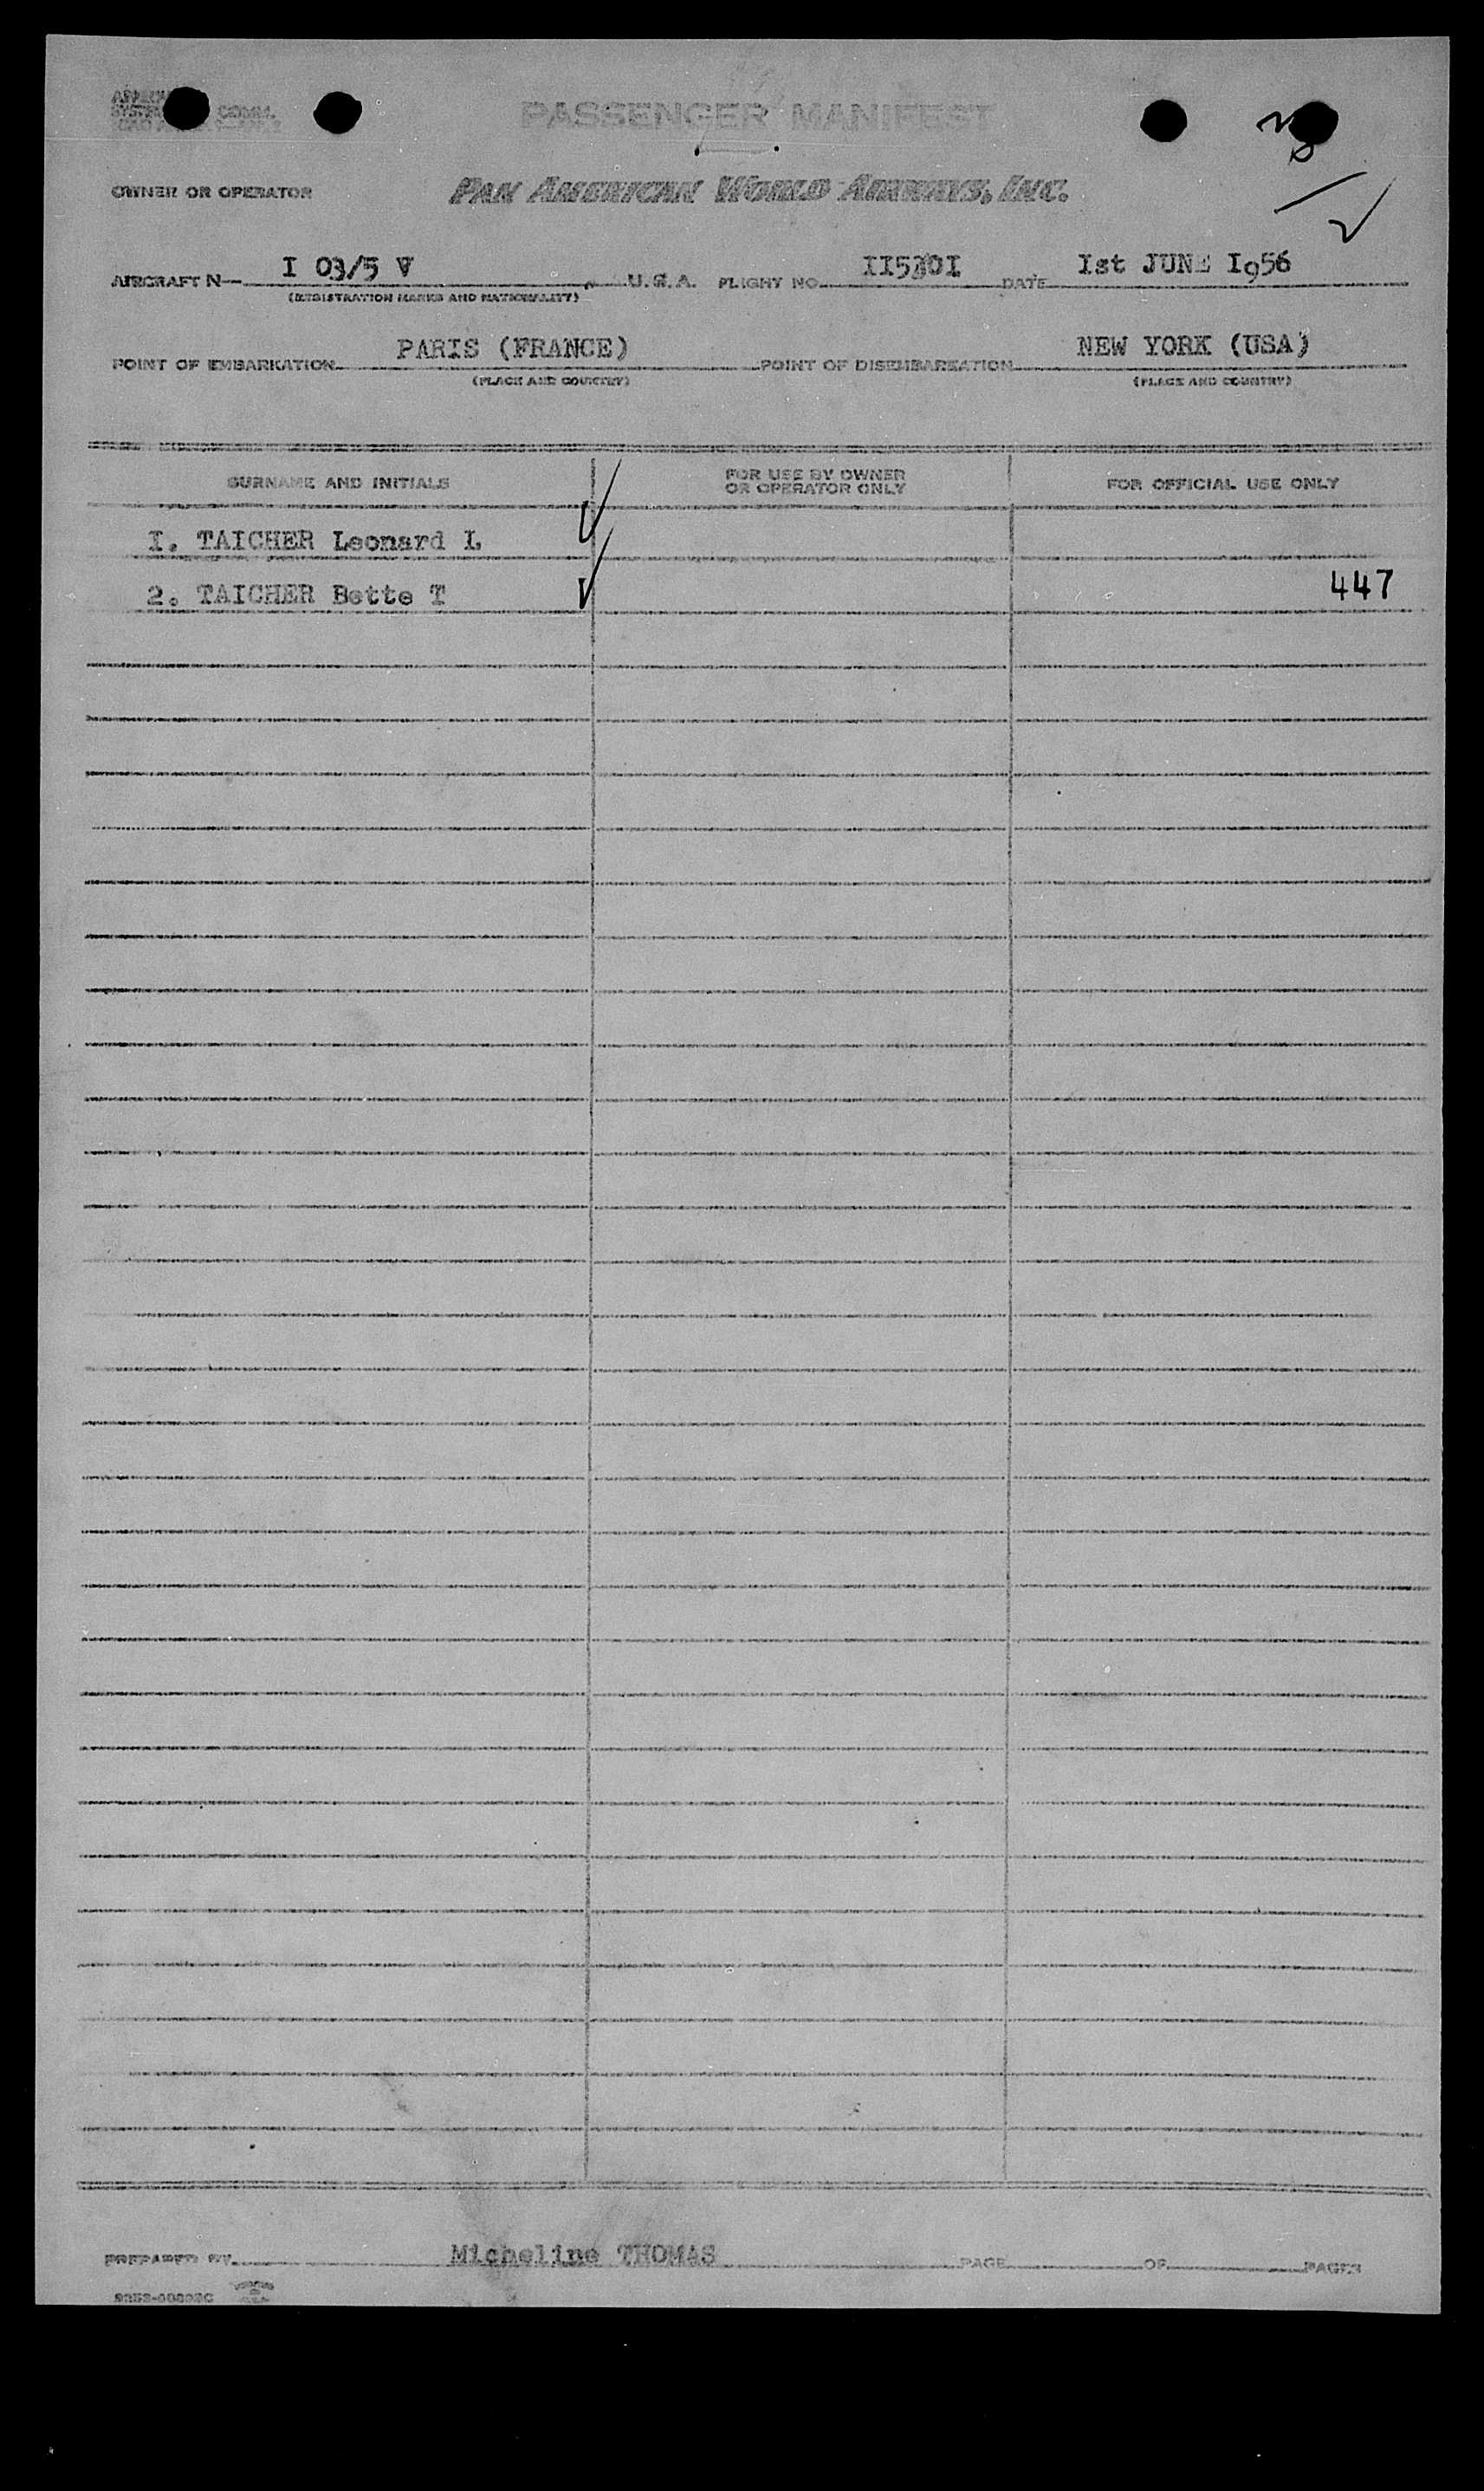 PASSENGER MANIFEST
OWNER OR OPERATOR PAN AMERICAN WORLD AIRWAYS, INC.
AIRCRAFT N— I 03/5 V U.S.A. FLIGHT NO. II5/30I DATE 1st JUNE I956
(REGISTRATION MARKS AND NATIONALITY)
POINT OF EMBARKATION PARIS (FRANCE) POINT OF DISEMBARKATION NEW YORK (USA)
(PLACE AND COUNTRY) (PLACE AND COUNTRY)
SURNAME AND INITIALS FOR USE BY OWNER OR OPERATOR ONLY FOR OFFICIAL USE ONLY
I. TAICHER Leonard L
2. TAICHER Bette T 447
PREPARED BY Micheline THOMAS PAGE OF PAGES